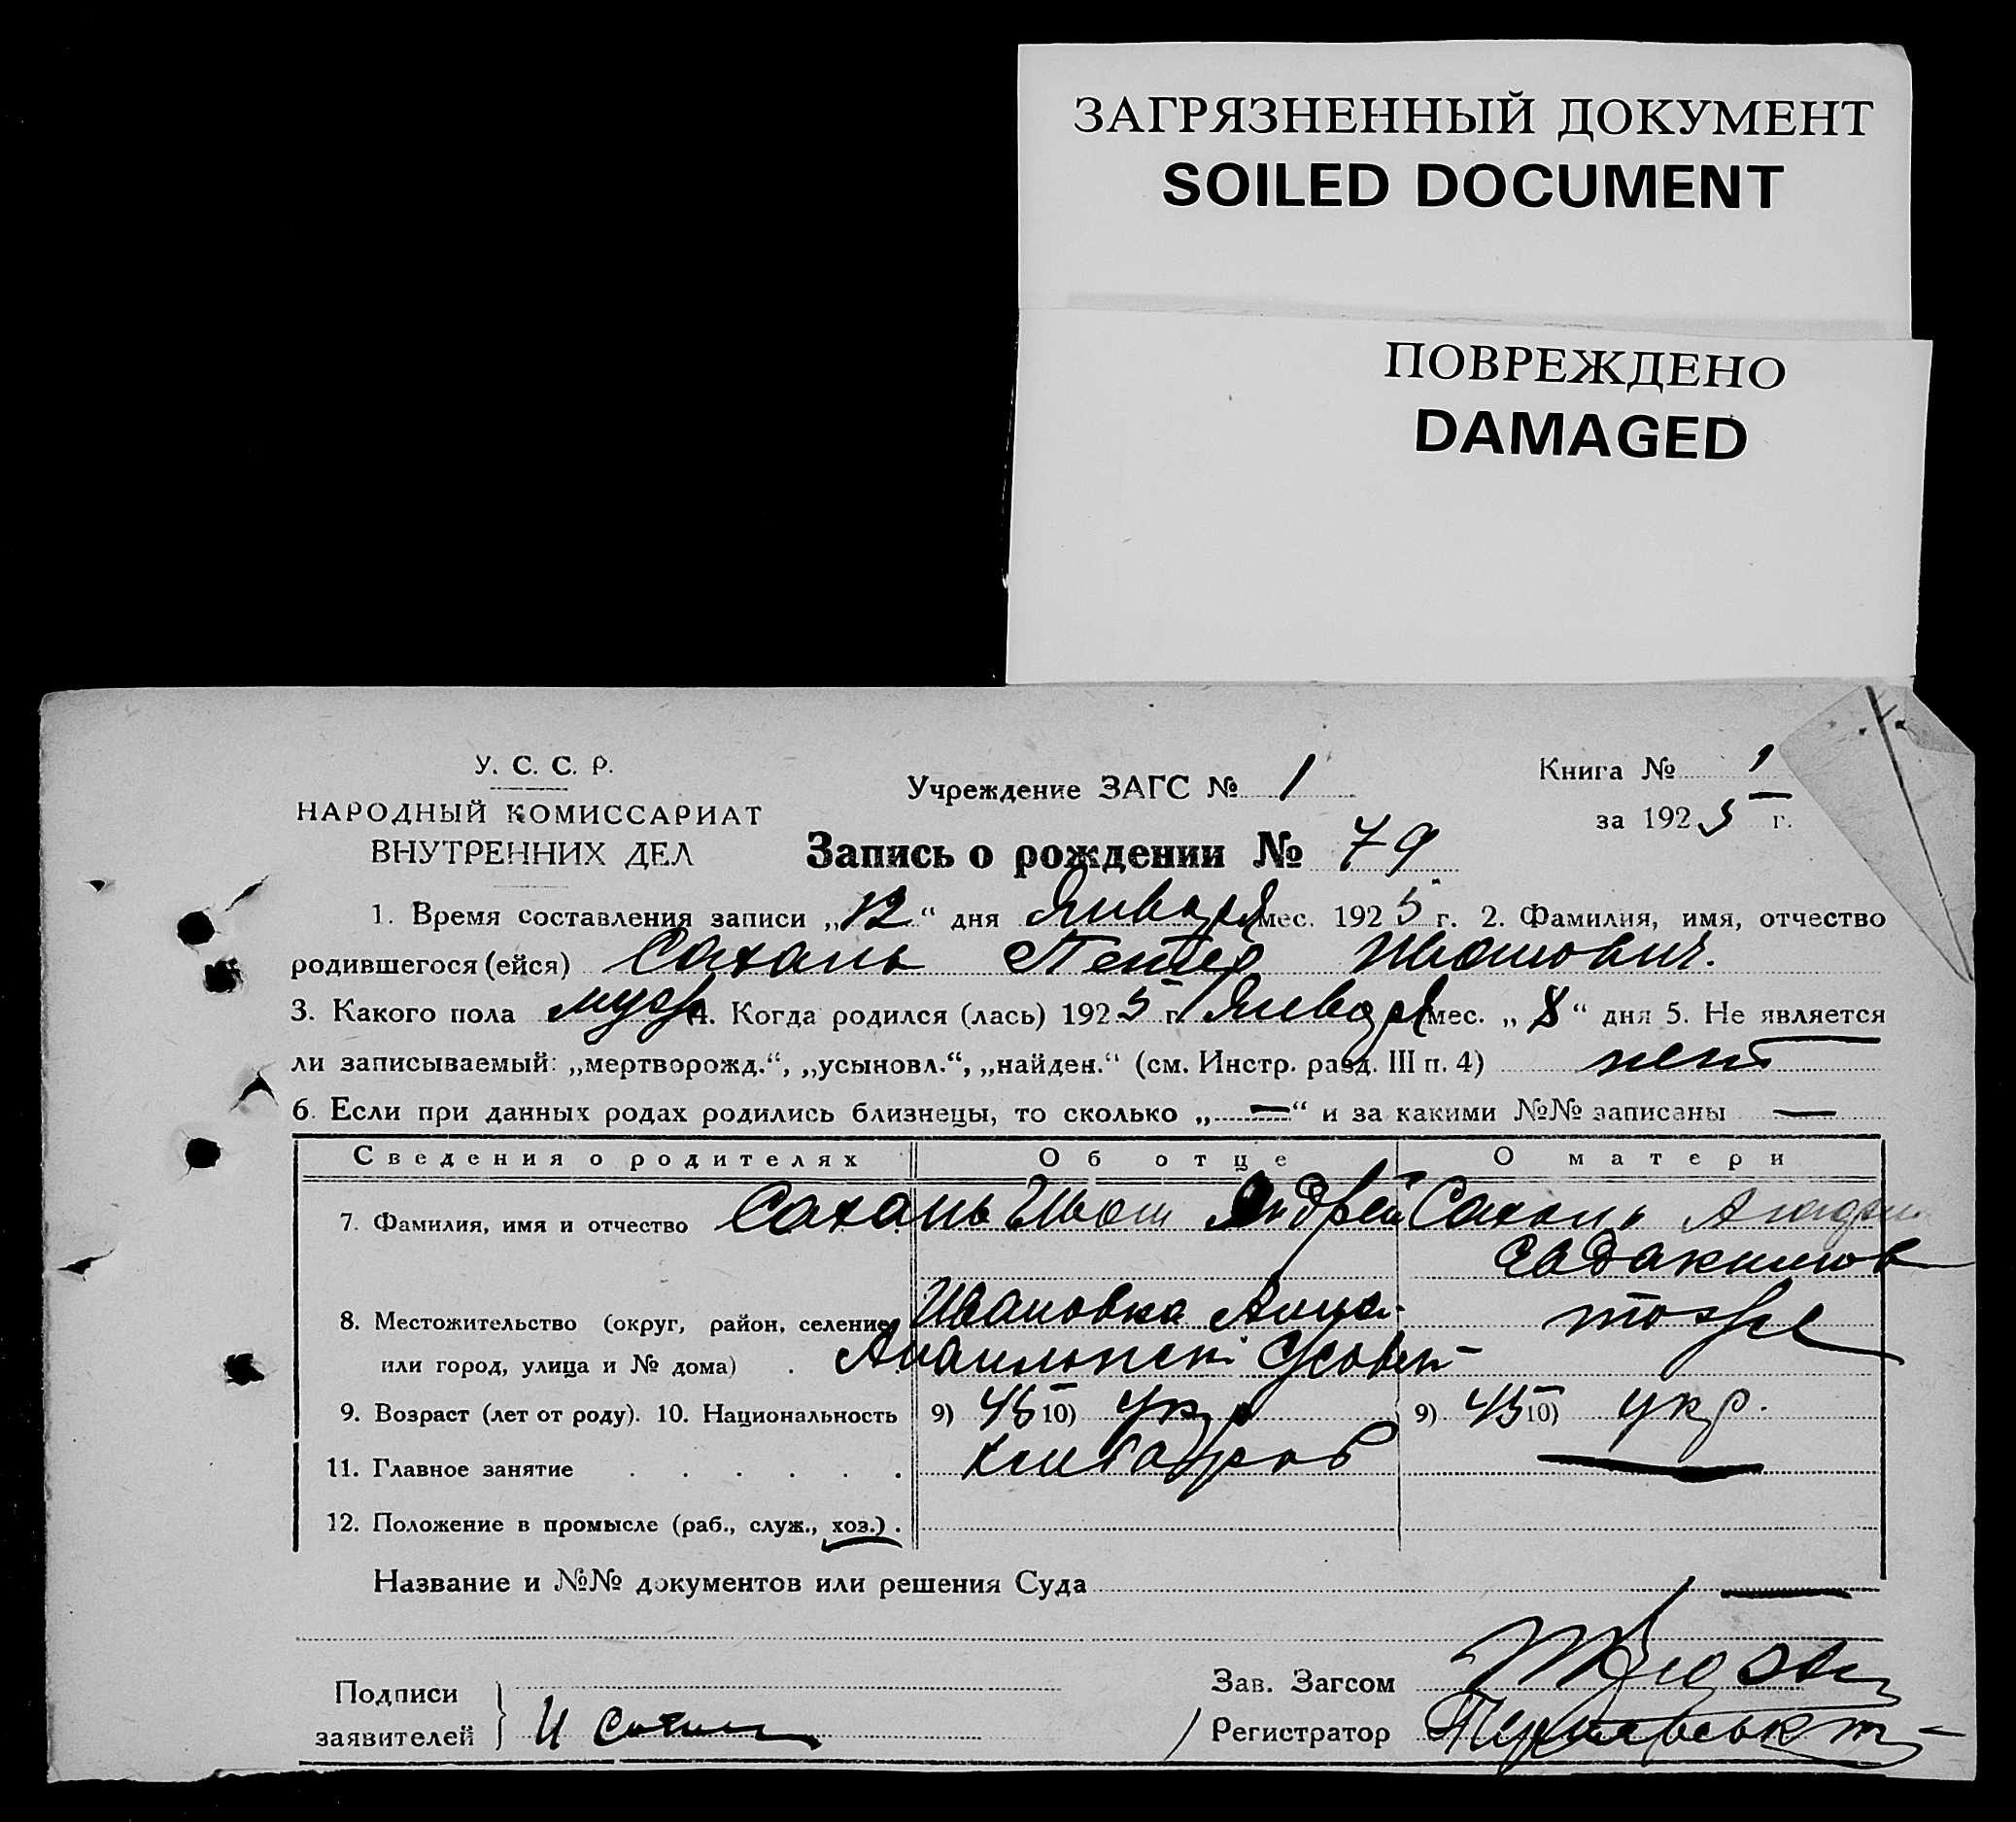 ЗАГРЯЗНЕННЫЙ ДОКУМЕНТ
SOILED DOCUMENT
ПОВРЕЖДЕНО
DAMAGED
У. С. С. Р.
НАРОДНЫЙ КОМИССАРИАТ
ВНУТРЕННИХ ДЕЛ
Учреждение ЗАГС № 1
Книга № 1
за 1925 г.
Запись о рождении № 79
1. Время составления записи „12“ дня Января мес. 1925 г. 2. Фамилия, имя, отчество
родившегося (ейся) Сахань Петр Иванович.
3. Какого пола муж 4. Когда родился (лась) 1925 г. Января мес. „8“ дня 5. Не является
ли записываемый: „мертворожд.“, „усыновл.“, „найден.“ (см. Инстр. разд. III п. 4) нет
6. Если при данных родах родились близнецы, то сколько „—“ и за какими №№ записаны —
Сведения о родителях Об отце О матери
7. Фамилия, имя и отчество Сахань Иван Андрей Сахань
8. Местожительство (округ, район, селение Ивановка тоже
или город, улица и № дома) .
9. Возраст (лет от роду). 10. Национальность 9) 45 10) укр 9) 45 10) укр.
11. Главное занятие . . . . . . хлебороб —
12. Положение в промысле (раб., служ., хоз.) .
Название и №№ документов или решения Суда —
Подписи
заявителей И Сахань
Зав. Загсом
Регистратор